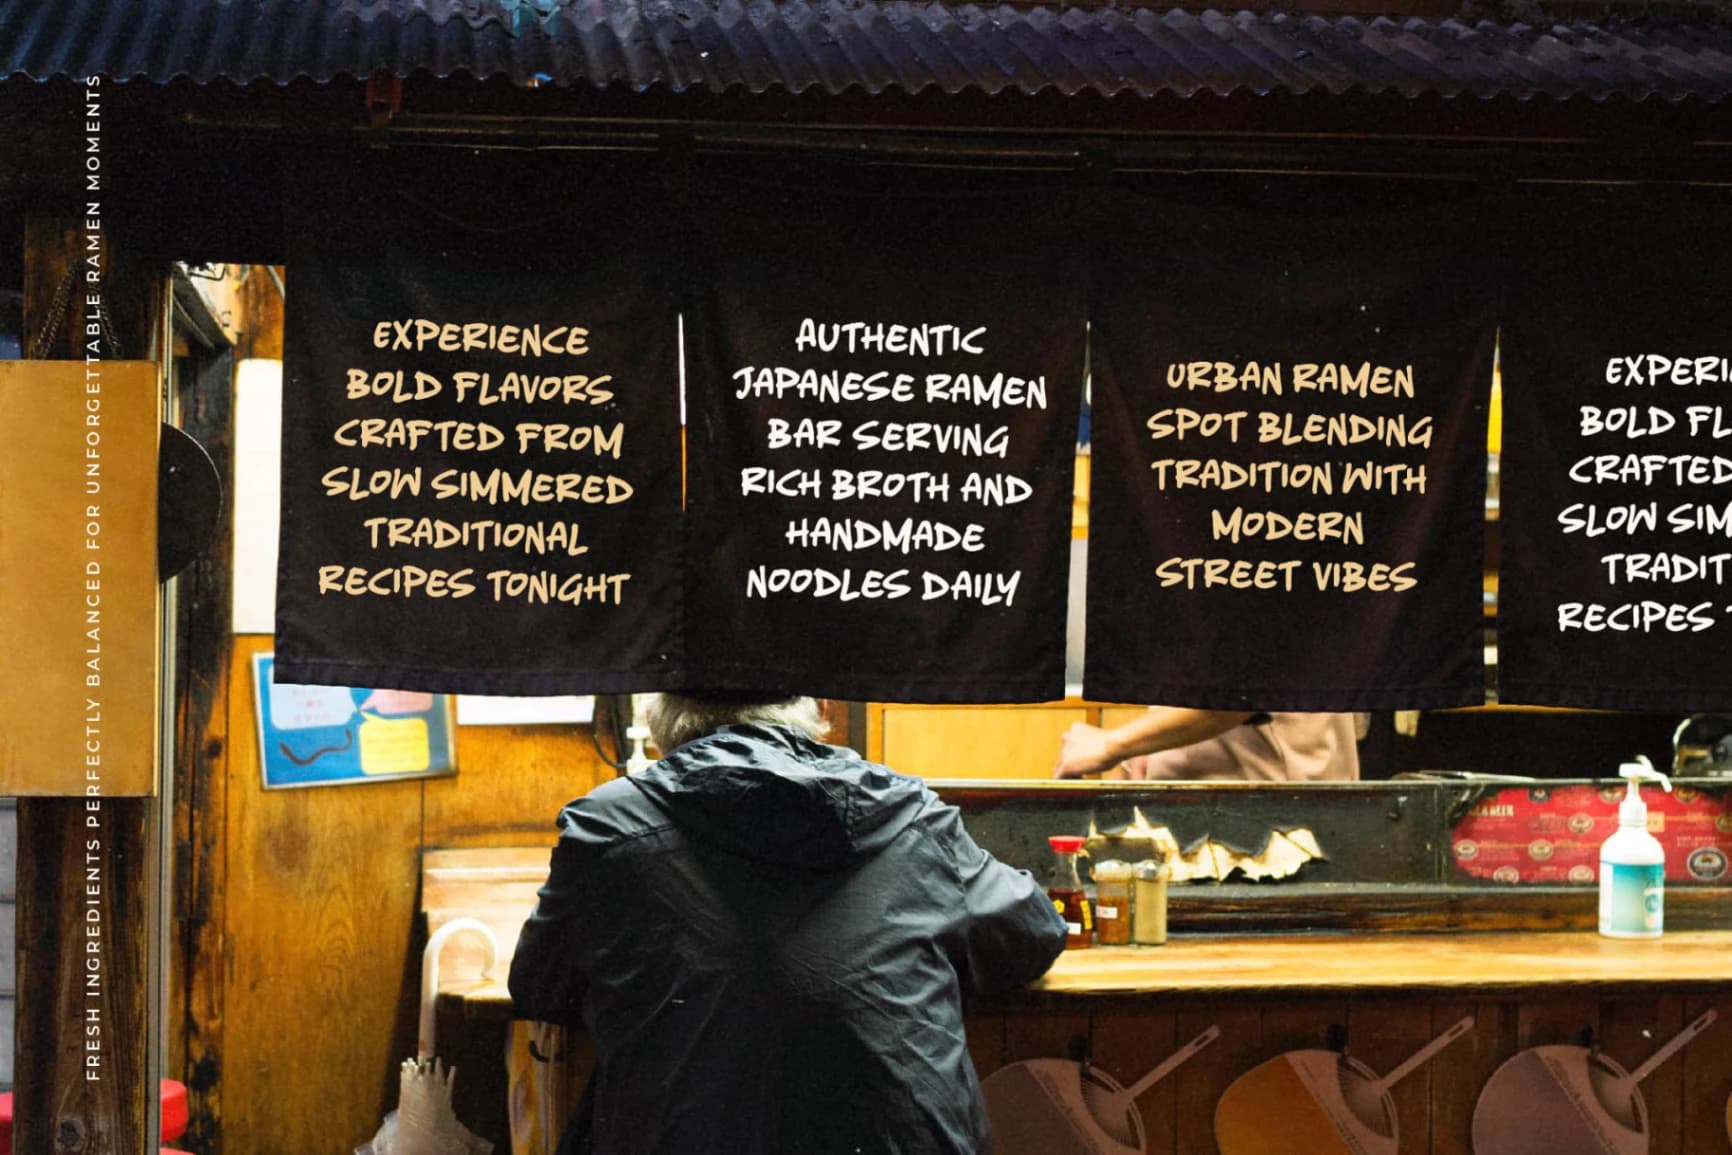 FRESH INGREDIENTS PERFECTLY BALANCED FOR UNFORGETTABLE RAMEN MOMENTS
EXPERIENCE
BOLD FLAVORS
CRAFTED FROM
SLOW SIMMERED
TRADITIONAL
RECIPES TONIGHT
AUTHENTIC
JAPANESE RAMEN
BAR SERVING
RICH BROTH AND
HANDMADE
NOODLES DAILY
URBAN RAMEN
SPOT BLENDING
TRADITION WITH
MODERN
STREET VIBES
EXPERI
BOLD FL
CRAFTED
SLOW SIM
TRADIT
RECIPES